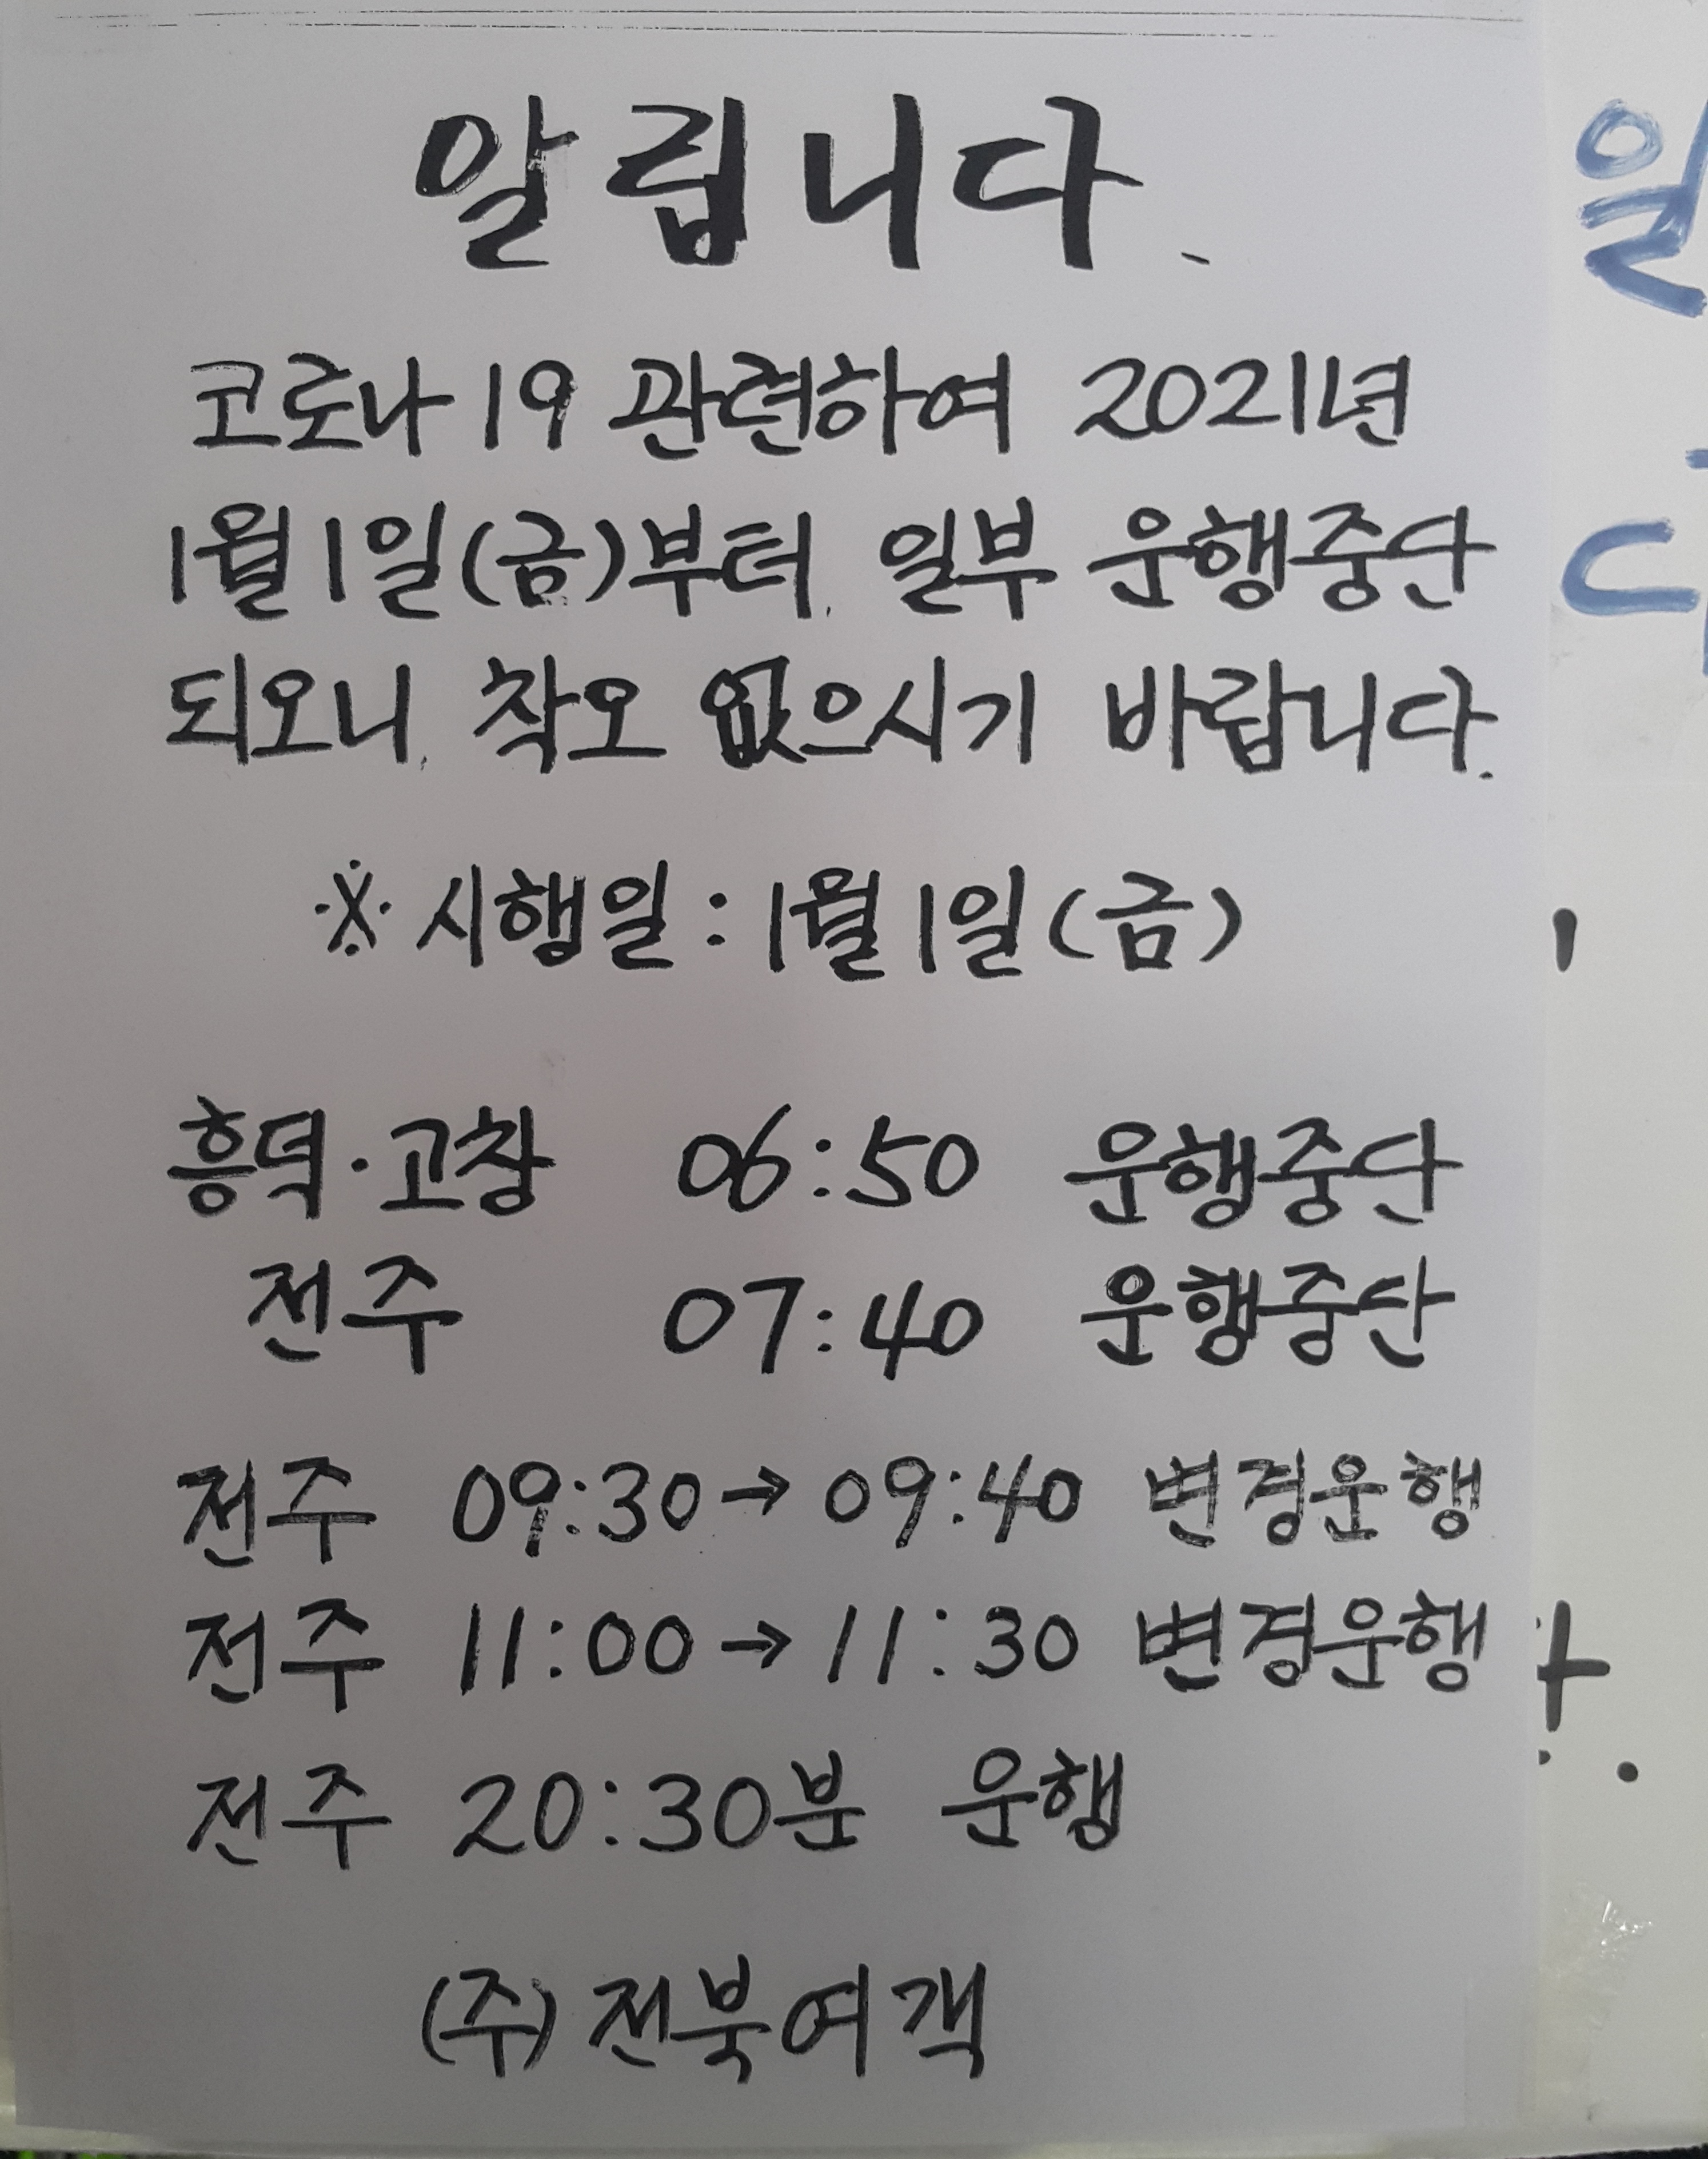 알립니다.
코로나 19 관련하여 2021년
1월 1일(금)부터, 일부 운행중단
되오니, 착오 없으시기 바랍니다.
※ 시행일 : 1월 1일 (금)
흥덕·고창 06:50 운행중단
전주 07:40 운행중단
전주 09:30→09:40 변경운행
전주 11:00→11:30 변경운행
전주 20:30분 운행
(주) 전북여객